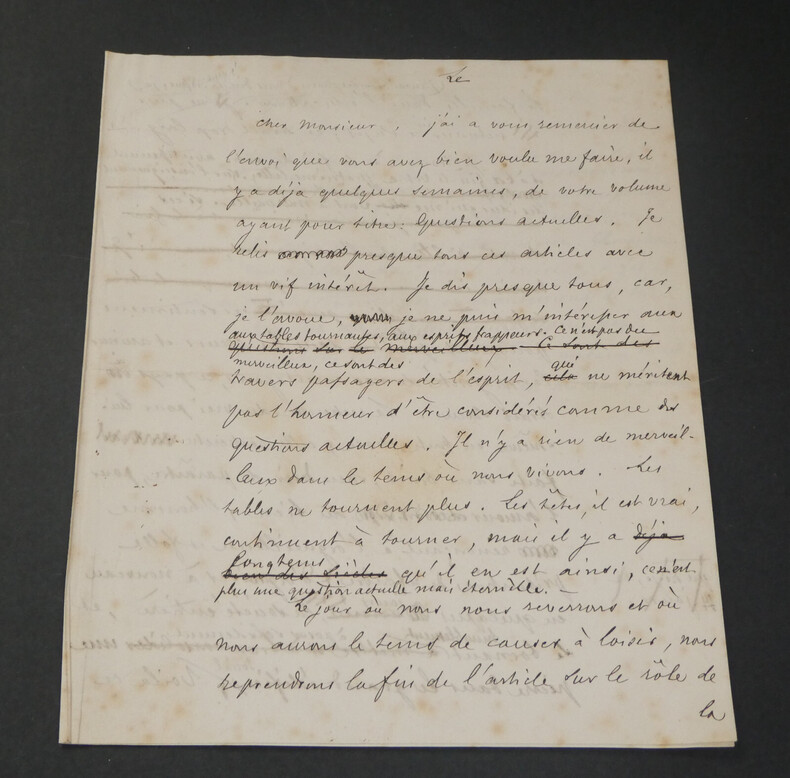 Le
Cher Monsieur, j'ai a vous remercier de
l'envoi que vous avez bien voulu me faire, il
y a déja quelques semaines, de votre volume
ayant pour titre : Questions actuelles. Je
relis presque tous ces articles avec
un vif intérêt. Je dis presque tous, car,
je l'avoue, je ne puis m'intéresser aux
aux tables tournantes, aux esprits frappeurs. Ce n'est pas du
questions sur le merveilleux. Ce sont des
merveilleux, ce sont des
travers passagers de l'esprit, cela qui ne méritent
pas l'honneur d'être considérés comme des
questions actuelles. Il n'y a rien de merveil-
-leux dans le tems où nous vivons. Les
tables ne tournent plus. Les têtes, il est vrai,
continuent à tourner, mais il y a déja
longtems
bien des siècles qu'il en est ainsi, ce n'est
plus une question actuelle mais éternelle. —
Le jour où nous nous reverrons et où
nous aurons le tems de causer à loisir, nous
reprendrons la fin de l'article sur le rôle de
la